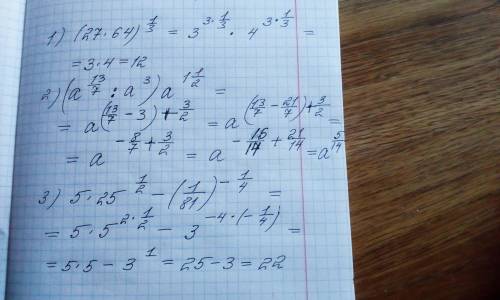 1) (27·64)^{1/3} = 3^{3·1/3} · 4^{3·1/3} =
= 3·4 = 12
2) (a^{13/7} : a^3) a^{1 1/2} =
= a^{(13/7 - 3) + 3/2} = a^{(13/7 - 21/7) + 3/2} =
= a^{-8/7 + 3/2} = a^{-16/14 + 21/14} = a^{5/14}
3) 5·25^{1/2} - (1/81)^{-1/4} =
= 5·5^{2·1/2} - 3^{-4·(-1/4)} =
= 5·5 - 3^1 = 25 - 3 = 22